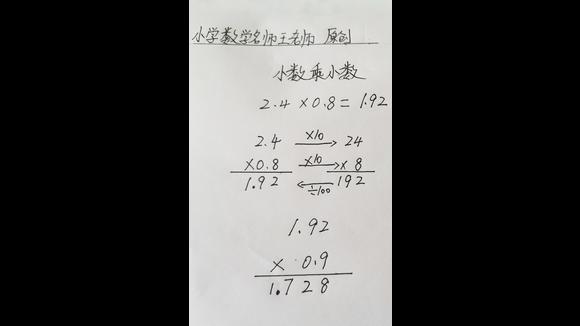 小学数学名师王老师 原创
小数乘小数
2.4×0.8=1.92
2.4 ×10 24
×0.8 ×10 ×8
1.92 ÷100 192
1.92
×0.9
1.728